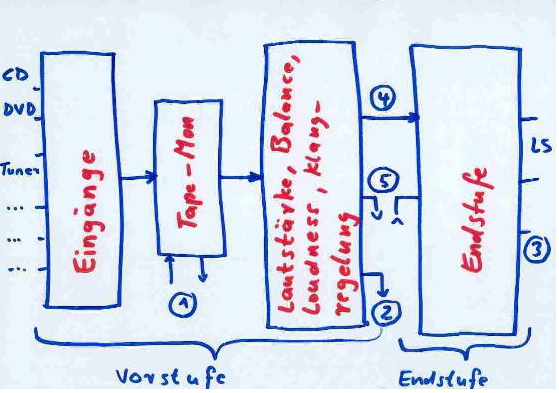 CD
DVD
Tuner
...
...
...
Eingänge
Tape-Mon
1
Lautstärke, Balance,
Loudness, Klang-
regelung
4
5
2
Endstufe
LS
3
Vorstufe
Endstufe